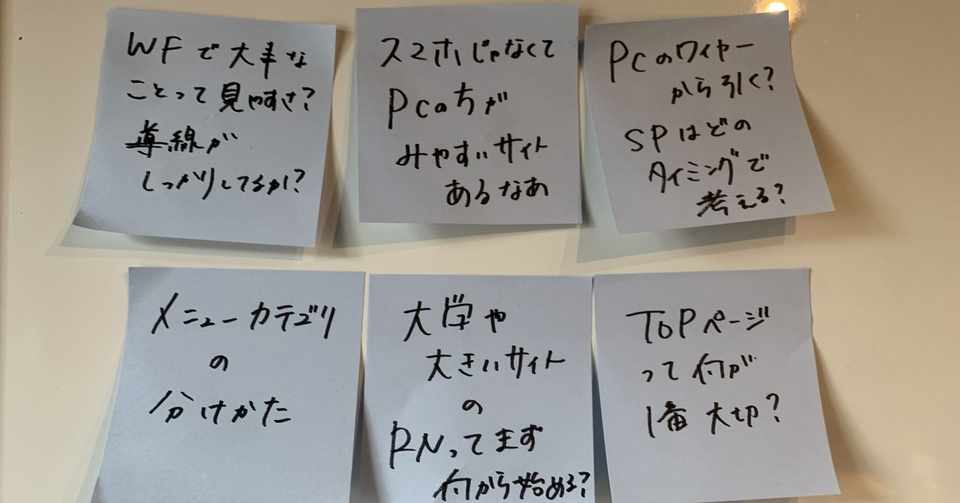 WFで大事な
ことって見やすさ?
導線が
しっかりしてるか?
スマホじゃなくて
PCのちが
みやすいサイト
あるなあ
PCのワイヤー
から引く?
SPはどの
タイミングで
考える?
メニューカテゴリ
の
分けかた
大学や
大きいサイト
の
RNってまず
何から始める?
TOPページ
って何が
1番大切?